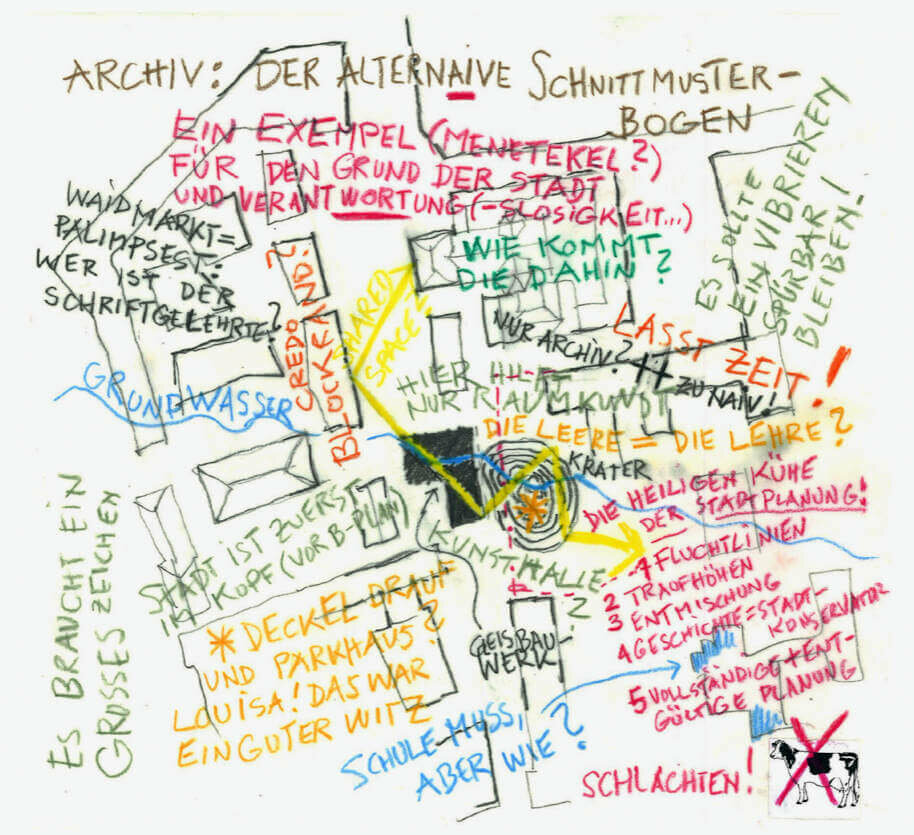 ARCHIV: DER ALTERNAIVE SCHNITTMUSTER-
BOGEN
EIN EXEMPEL (MENETEKEL?)
FÜR DEN GRUND DER STADT
UND VERANTWORTUNG (-SLOSIGKEIT...)
WAIDMARKT=
PALIMPSEST:
WER IST DER
SCHRIFTGELEHRTE?
CREDO
BLOCKRAND?
?
SHARED
SPACE?
WIE KOMMT
DIE DAHIN?
ES SOLLTE
EIN VIBRIEREN
SPÜRBAR
BLEIBEN!
NUR ARCHIV?
ZU NAIV!
LASST ZEIT!
HIER HILFT
NUR RAUMKUNDT
GRUNDWASSER
DIE LEERE = DIE LEHRE?
KRATER
DIE HEILIGEN KÜHE
DER STADTPLANUNG!
1 FLUCHTLINIEN
2 TRAOFHÖHEN
3 ENTMISCHUNG
4 GESCHICHTE=STADT-
KONSERVATOR
5 VOLLSTÄNDIGE + ENT-
GÜLTIGE PLANUNG
SCHLACHTEN!
KUNSTHALLE
?
STADT IST ZUERST
IM KOPF (VOR B-PLAN)
ES BRAUCHT EIN
GROSSES ZEICHEN
* DECKEL DRAUF
UND PARKHAUS?
LOUISA! DAS WAR
EIN GUTER WITZ
GLEISBAU-
WERK
SCHULE MUSS,
ABER WIE?